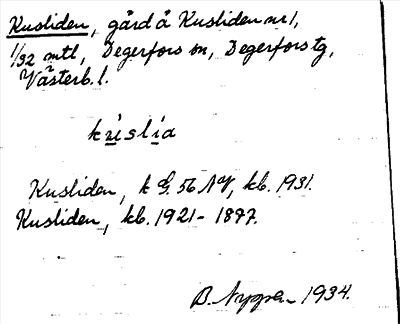 Kusliden, gård å Kusliden nr 1,
1/32 mtl, Degerfors sn, Degerfors tg,
Västerb. l.
kuslia
Kusliden, k G. 56 NV, kb. 1931.
Kusliden, kb. 1921-1897.
B. Nygren 1934.